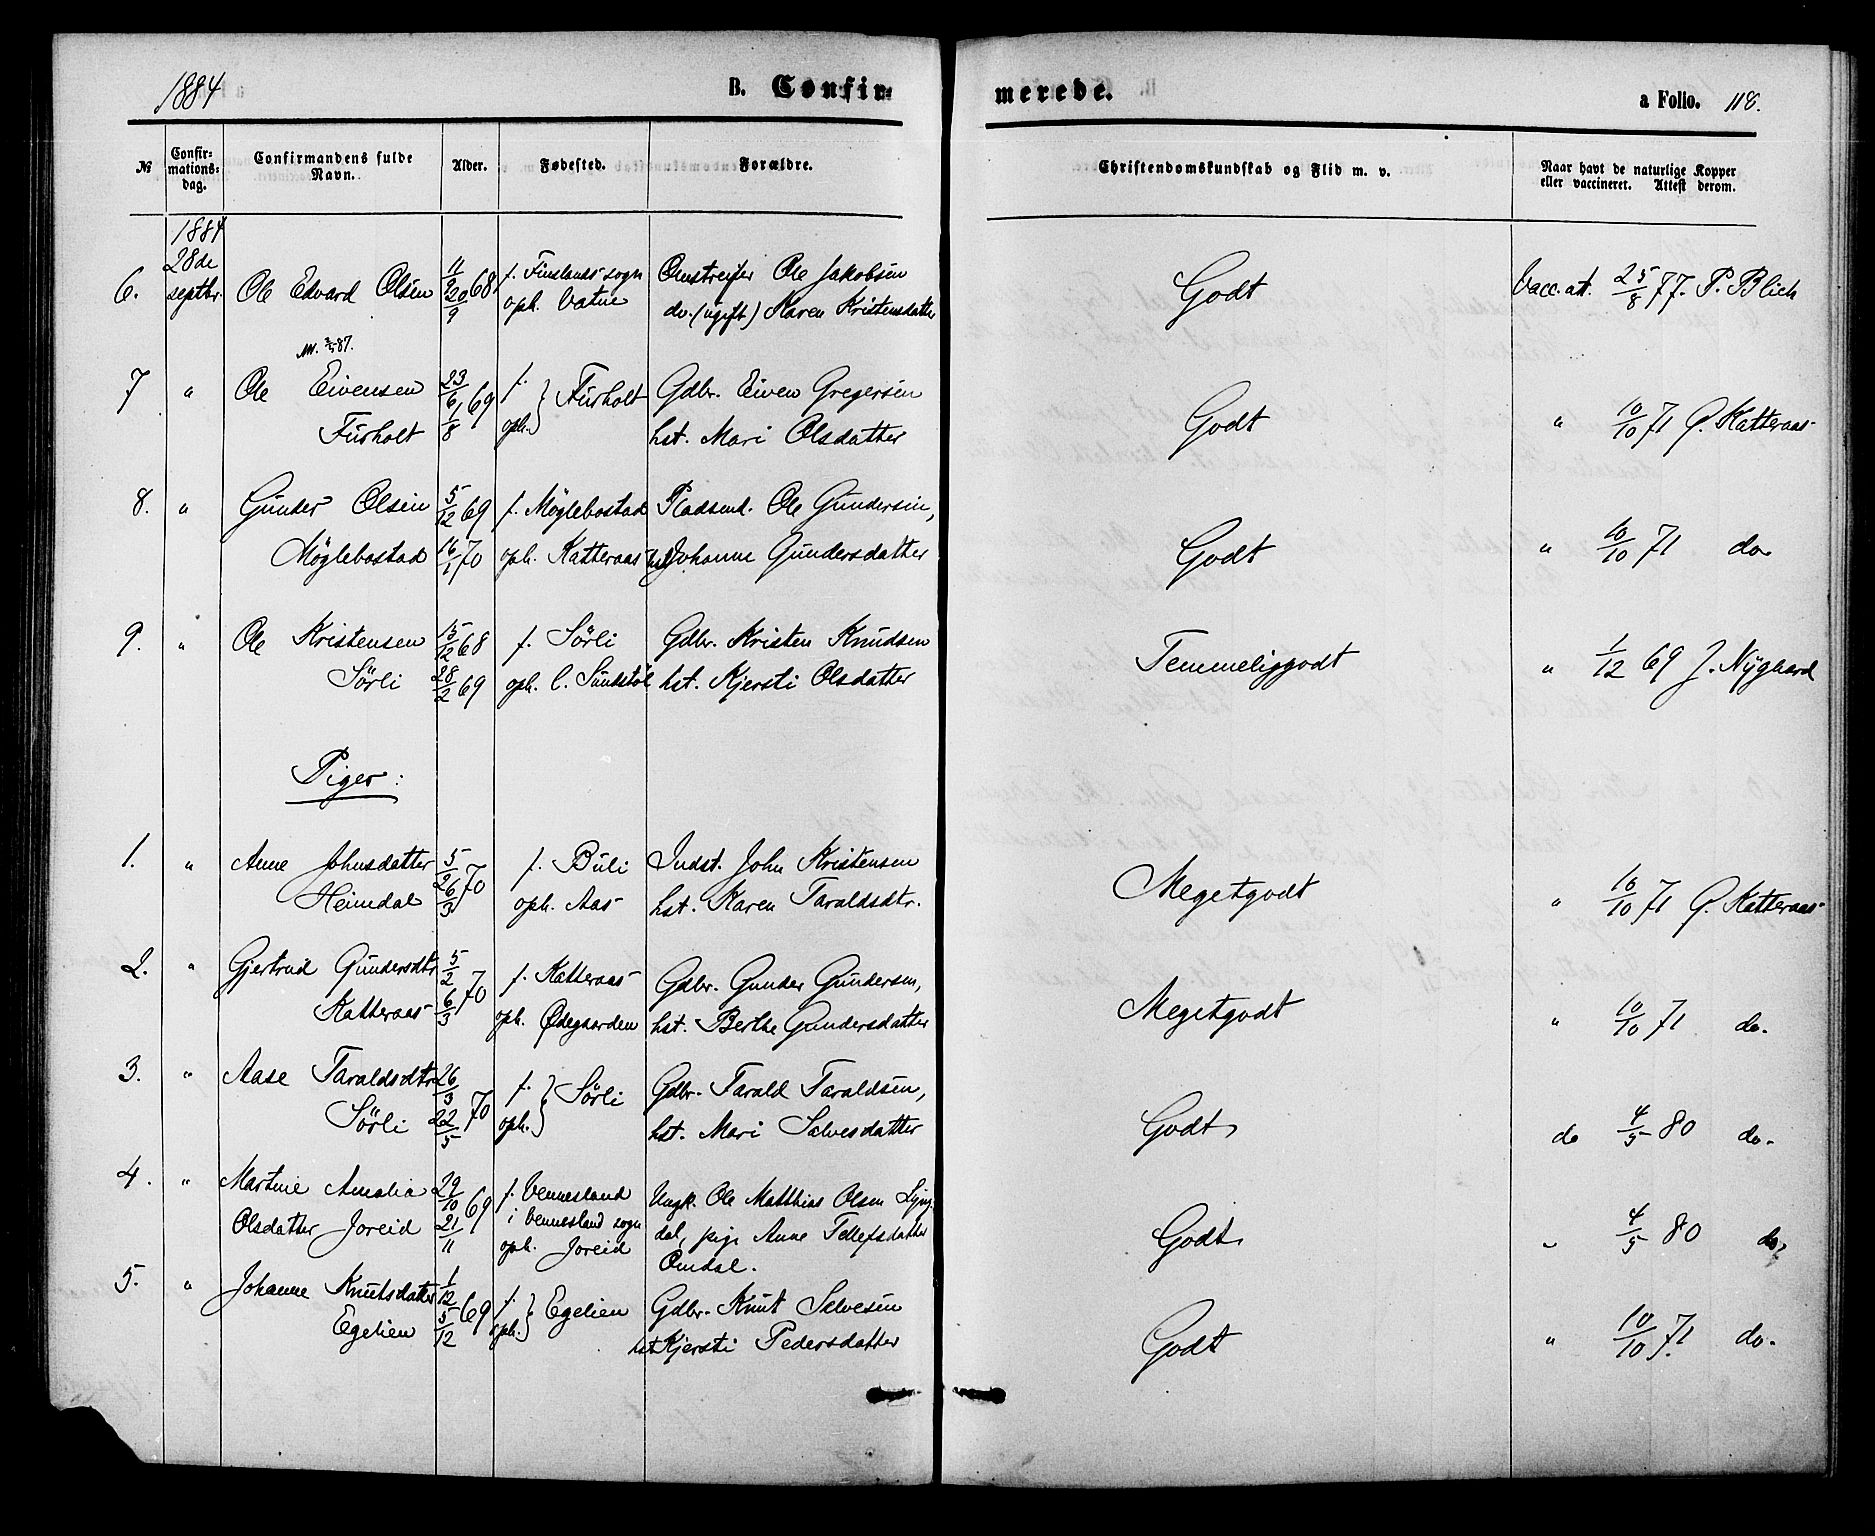 1884 B. Confir= merede. a Folio. 118.
№ Confir=mations=dag. Confirmandens fulde Navn. Alder. Fødested. Forældre. Christendomskundskab og Flid m. v. Naar havt de naturlige Kopper eller vaccineret. Attest derom.
1884
6. 28de septbr. Ole Edvard Olsen 11/9 20/9 68 f. Finslands sogn oph. Vatne Omstreifer Ole Jakobsen do. (ugift) Karen Kristensdatter Godt Vacc. at. 25/8 77. P. Blich
87.
7 " Ole Eivensen Furholt 23/6 1/8 69 f. oph. } Furholt Gdbr. Eiven Gregersen hst. Mari Olsdatter Godt " 10/10 71 G. Katteraas
8. " Gunder Olsen Møglebostad 5/12 69 16/1 70 f. Møglebostad oph. Katteraas Pladsmd. Ole Gundersen, hst. Johanne Gundersdatter Godt " 10/10 71 do
9. " Ole Kristensen Sörli 15/12 68 28/2 69 f. Sörli oph. l. Sundstöl Gdbr. Kristen Knudsen hst. Kjersti Olsdatter Temmeliggodt " 1/12 69 J. Nygaard
Piger:
1. " Anne Johnsdatter Heimdal 5/2 6/3 70 f. Buli oph. Aas Indst. John Kristensen hst. Karen Taraldsdtr. Megetgodt " 10/10 71 G. Katteraas
2. " Gjertrud Gundersdtr Katteraas 5/2 6/3 70 f. Katteraas oph. Ødegaarden Gdbr. Gunder Gundersen, hst. Berthe Gundersdatter Megetgodt " 10/10 71 do.
3. " Aase Taraldsdtr Sörli 26/3 22/5 70 f. oph. } Sörli Gdbr. Tarald Taraldsen, hst. Mari Salvesdatter Godt do 4/5 80 do.
4. " Martine Amalia Olsdatter Joreid 29/10 21/11 69 f. Vennesland i Vennesland sogn oph. Joreid Ungk. Ole Matthias Olsen Lyngdal, pige Anne Tellefsdatter Omdal. Godt " 4/5 80 do.
5. " Johanne Knutsdatter Egelien 1/12 5/12 69 f. oph. } Egelien Gdbr. Knut Salvesen hst Kjersti Pedersdatter Godt " 10/10 71 do.